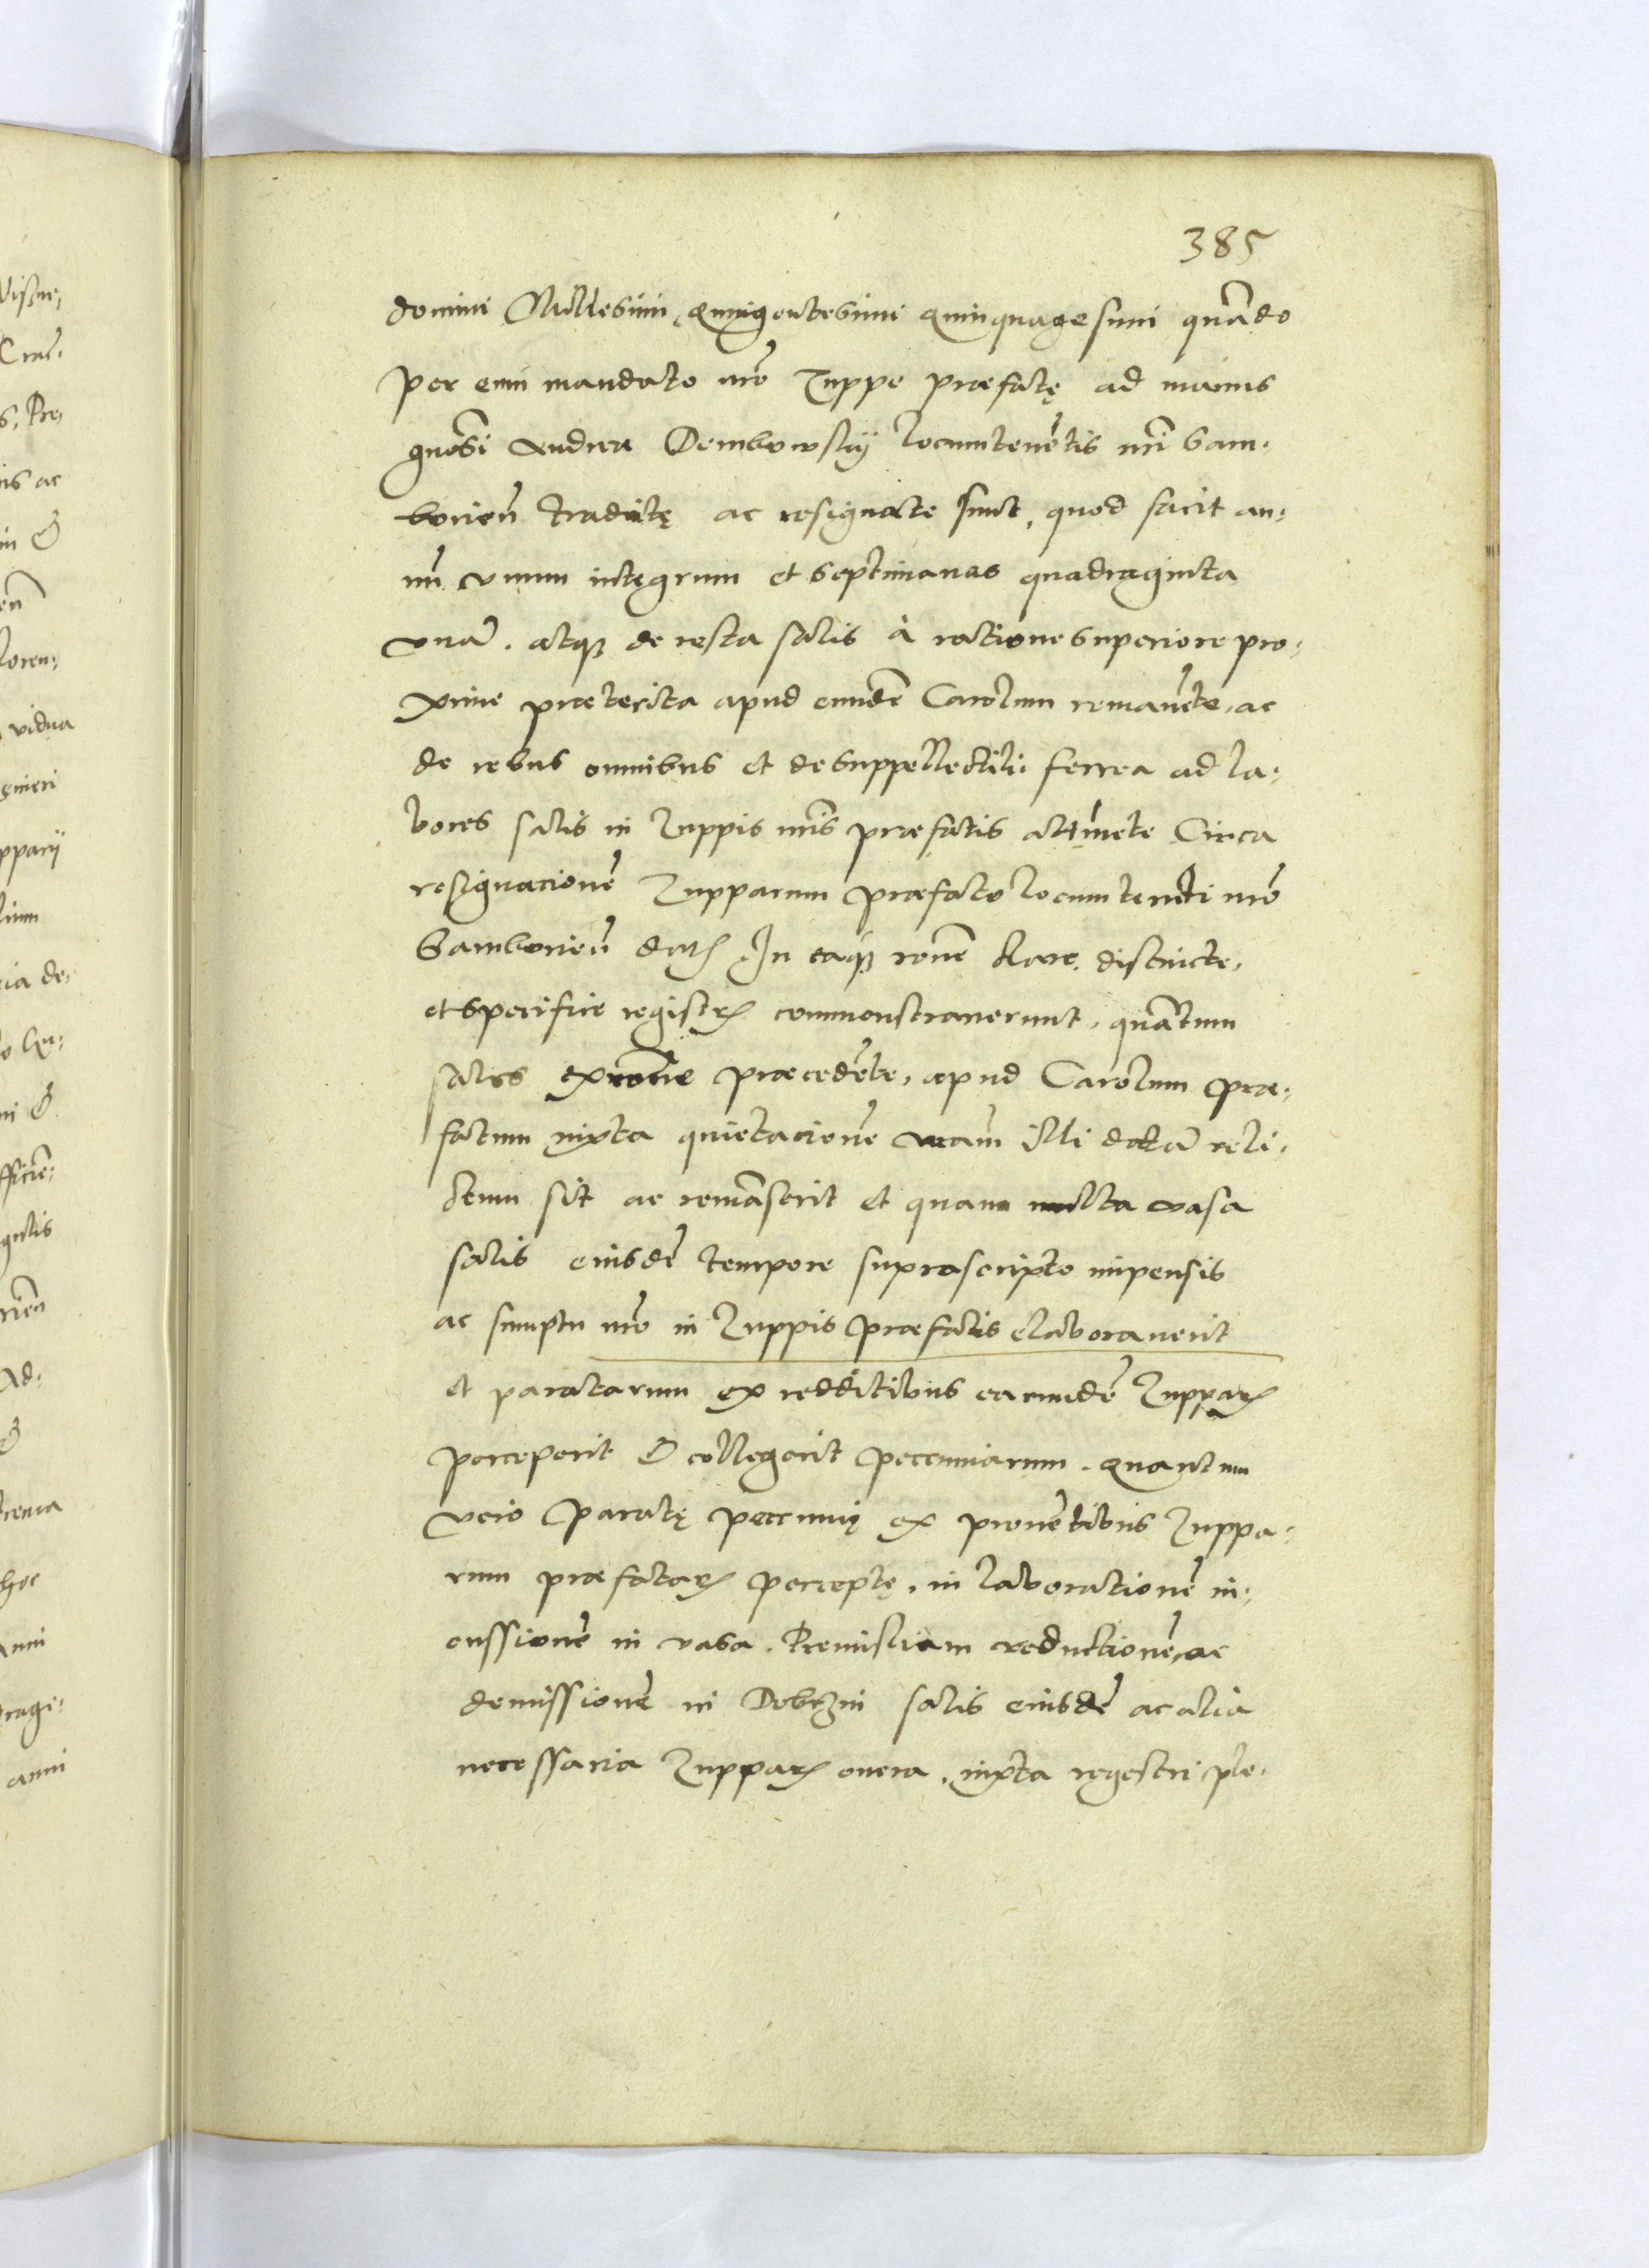 385
domini Millesimi, Quingentesimi Quinquagesimi quādo
per eum mandato nr̄o Zuppe præfatę ad manus
gnōsi Andreæ Dembowskij locumtenētis nr̄i Sam-
borieñ traditę ac resignate sunt, quod facit an-
nū vnum integrum et Septimanas quadraginta
vnā. atq₃ de resta salis à ratione superiore pro-
xime præterita apud eundē Carolum remanēte, ac
de rebus omnibus et de suppellectili ferrea ad la-
bores salis in Zuppis nr̄is præfatis attinēte Circa
resignacionē Zupparum præfato locumtenēti nr̄o
Samborieñ datꝝ In eaq₃ rōne clare, distincte,
et specifice registrꝝ commonstrauerunt, quātum
salis ex rōne præcedēte, apud Carolum præ-
fatum iuxta quietacionē nrām illi datā reli-
ctum sit ac remāserit et quam multa vasa
salis eiusdē tempore suprascripto impensis
ac sumptu nr̄o in Zuppis præfatis elaborauerit
et paratarum ex redditibus earundē Zupparꝝ
perceperit & collegerit pecuniarum. Quantum
vero paratę pecunię ex prouētibus Zuppa-
rum præfatarꝝ perceptę, in laborationē in-
cussionē in vasa. Premisliam reductionē, ac
demissionē in Dobrzin salis eiusdē ac alia
necessaria Zupparꝝ onera, iuxta regestri ple-
vidua
ac